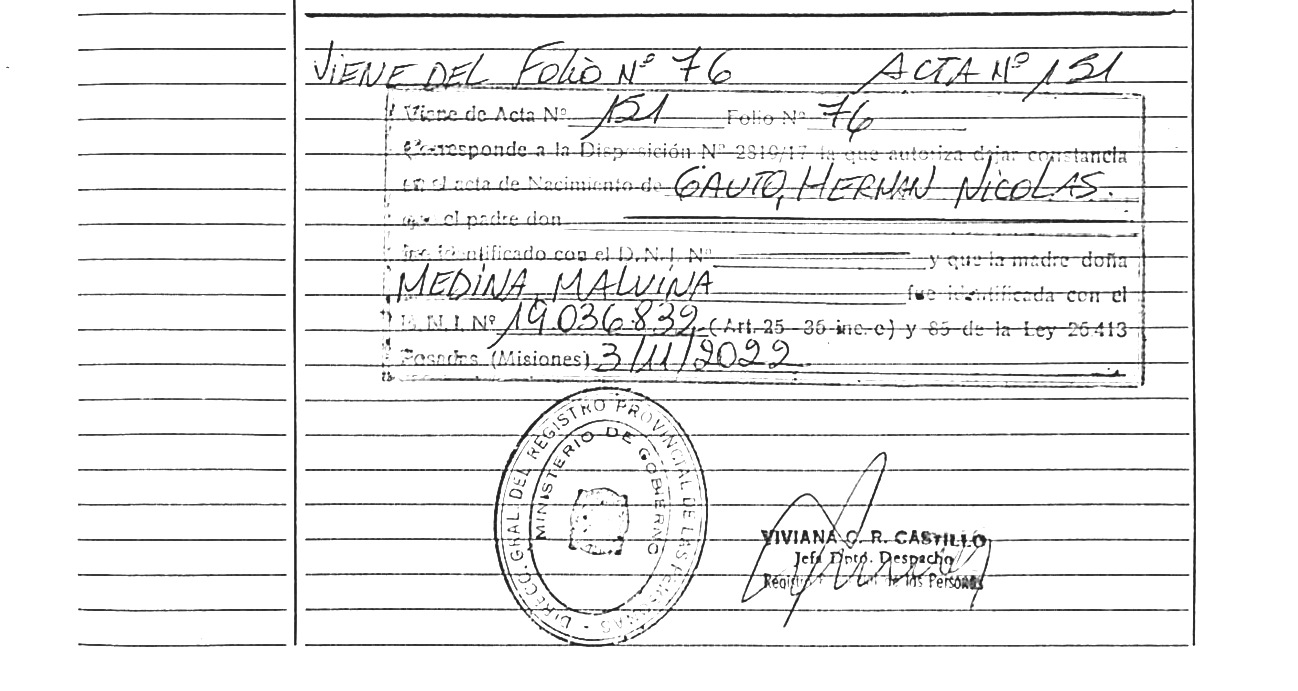 VIENE DEL FOLIO Nº 76 ACTA Nº 151
Viene de Acta Nº 151 Folio Nº 76
Corresponde a la Disposición Nº 2819/17 la que autoriza dejar constancia
en el acta de Nacimiento de GAUTO, HERNAN NICOLAS.
que el padre don
fue identificado con el D.N.I. Nº y que la madre doña
MEDINA, MALVINA fue identificada con el
D.N.I. Nº 19.036.839 (Art. 25 - 36 inc. c) y 85 de la Ley 26.413
Posadas (Misiones) 3/11/2022
DIRECC. GRAL. DEL REGISTRO PROVINCIAL DE LAS PERSONAS -
MINISTERIO DE GOBIERNO
VIVIANA C. R. CASTILLO
Jefa Dpto. Despacho
Registro Provincial de las Personas